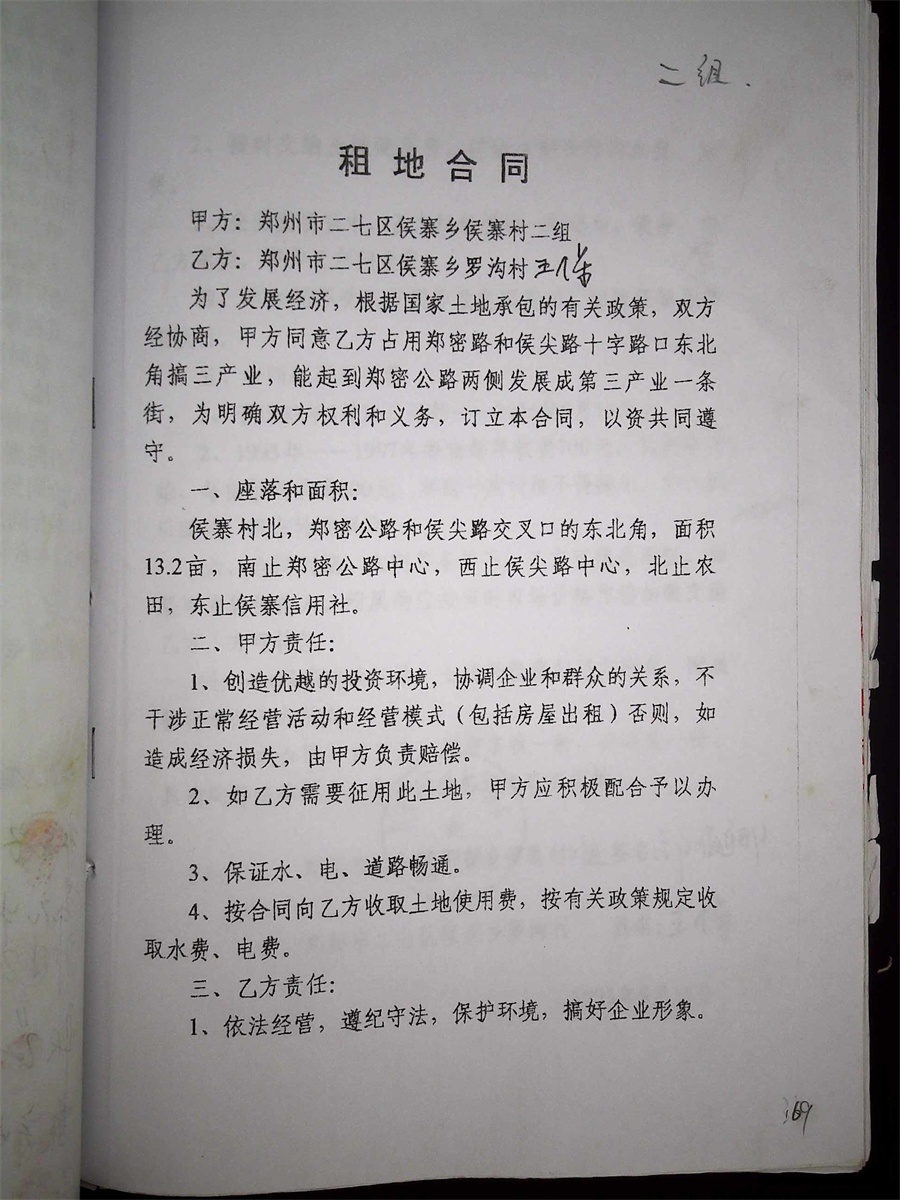 二组.
租地合同
甲方：郑州市二七区侯寨乡侯寨村二组
乙方：郑州市二七区侯寨乡罗沟村
为了发展经济，根据国家土地承包的有关政策，双方
经协商，甲方同意乙方占用郑密路和侯尖路十字路口东北
角搞三产业，能起到郑密公路两侧发展成第三产业一条
街，为明确双方权利和义务，订立本合同，以资共同遵
守。
一、座落和面积：
侯寨村北，郑密公路和侯尖路交叉口的东北角，面积
13.2亩，南止郑密公路中心，西止侯尖路中心，北止农
田，东止侯寨信用社。
二、甲方责任：
1、创造优越的投资环境，协调企业和群众的关系，不
干涉正常经营活动和经营模式（包括房屋出租）否则，如
造成经济损失，由甲方负责赔偿。
2、如乙方需要征用此土地，甲方应积极配合予以办
理。
3、保证水、电、道路畅通。
4、按合同向乙方收取土地使用费，按有关政策规定收
取水费、电费。
三、乙方责任：
1、依法经营，遵纪守法，保护环境，搞好企业形象。
169